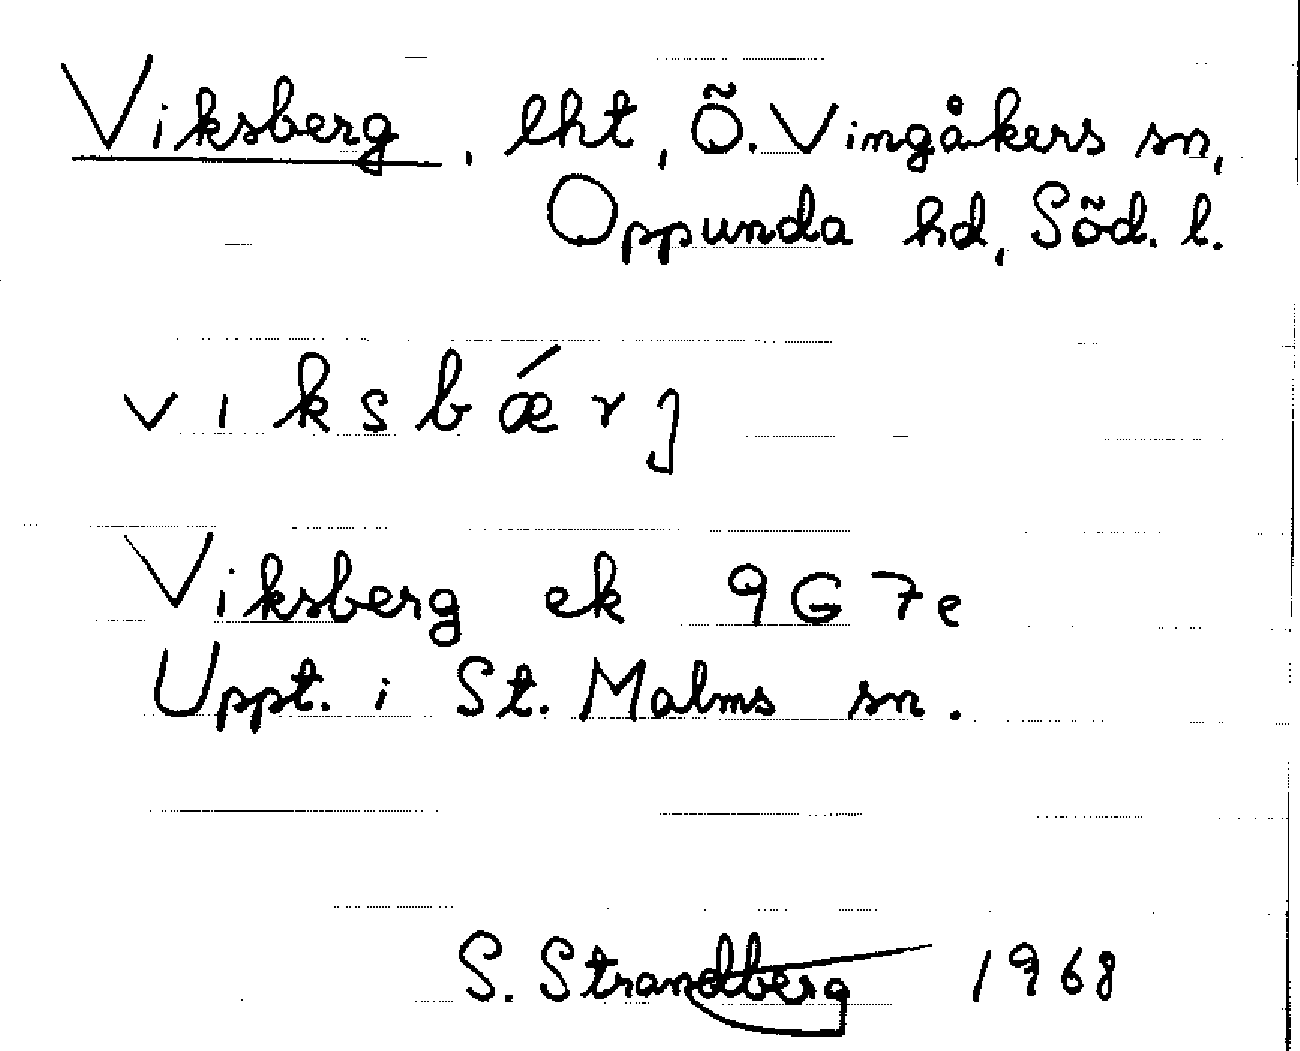 Viksberg, lht, Ö. Vingåkers sn,
Oppunda hd, Söd. l.
vıksbǽrj
Viksberg ek 9G7e
Uppt. i St. Malms sn.
S. Strandberg 1968